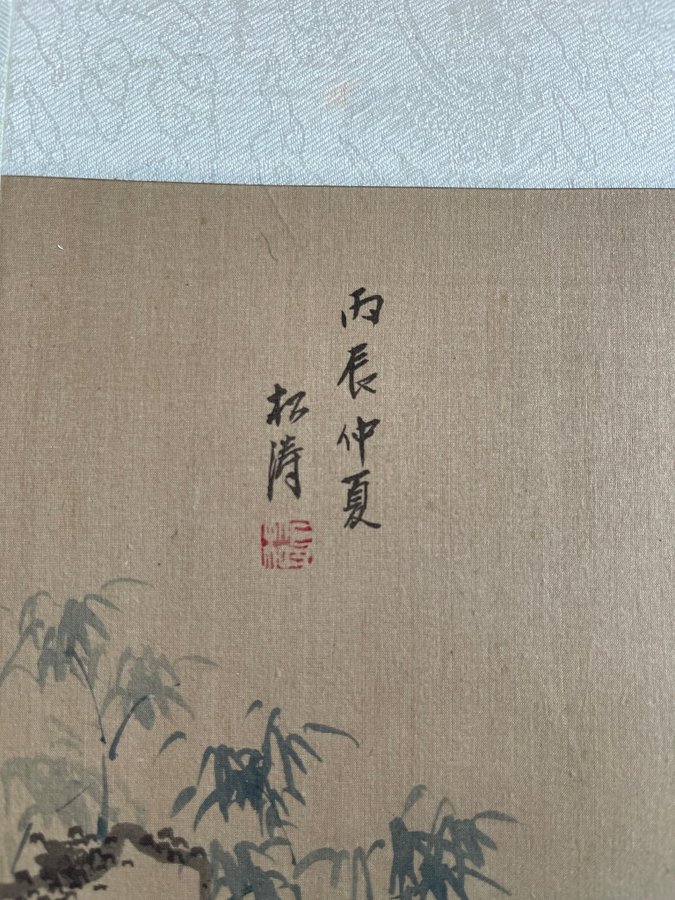 丙辰仲夏
松涛